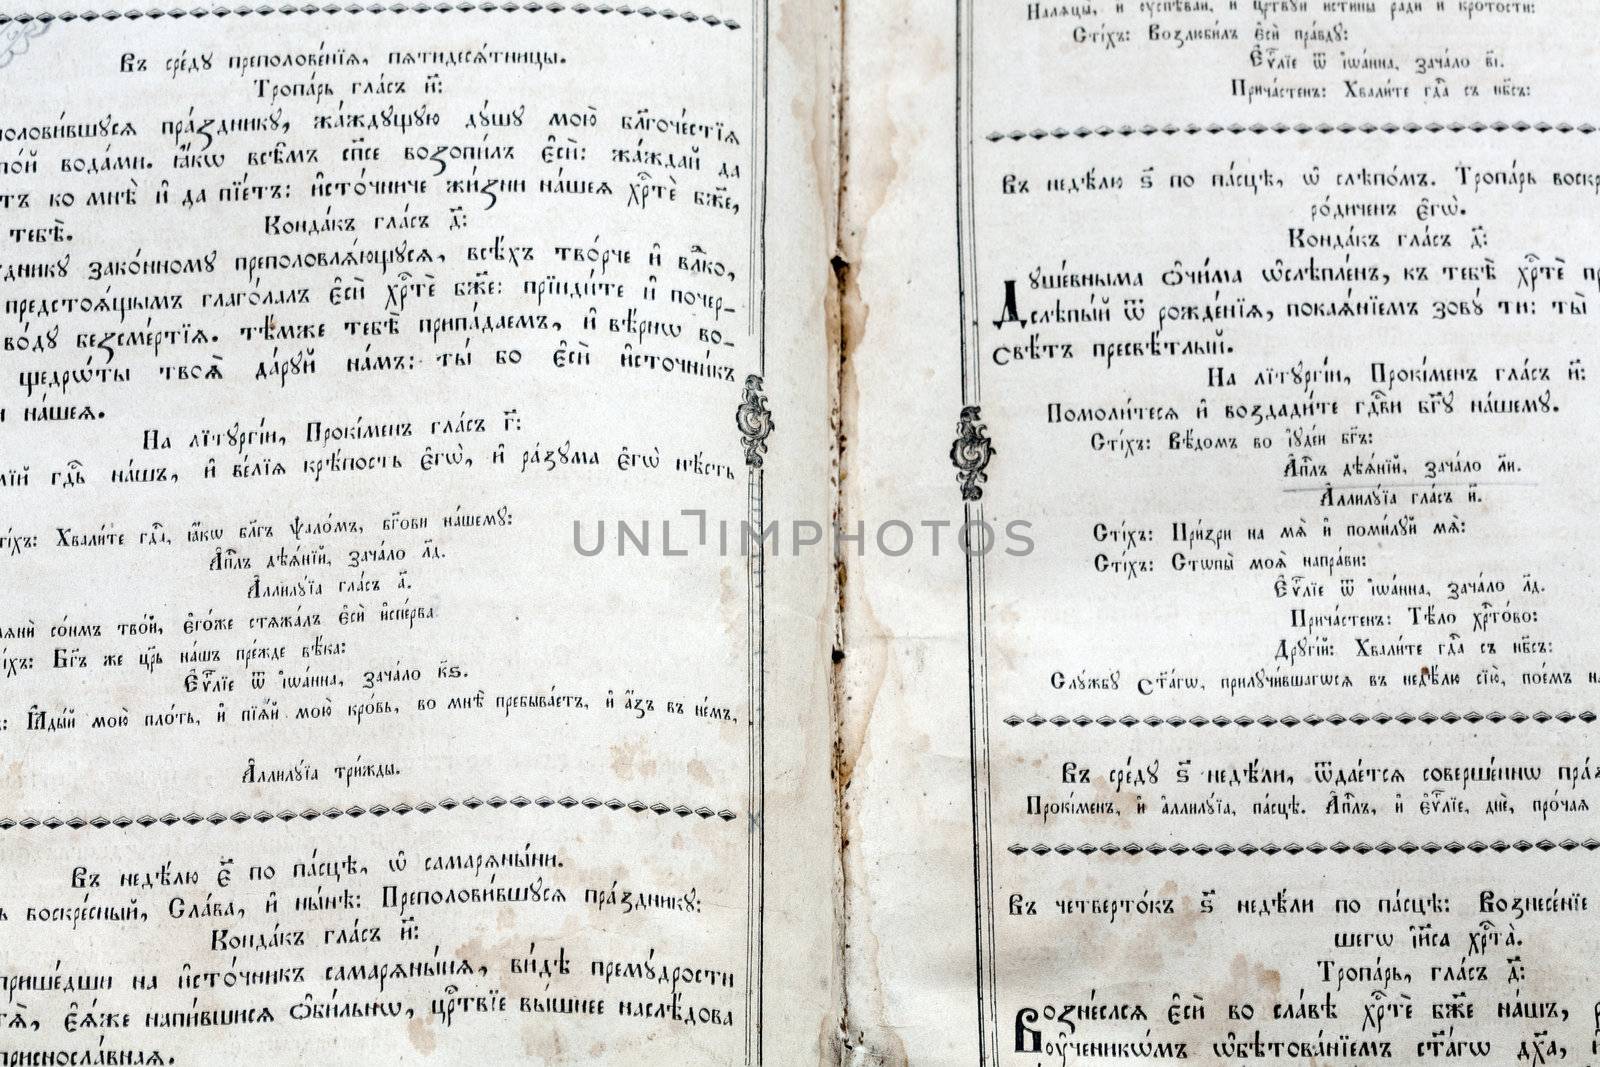 Въ сре́дꙋ преполове́нїѧ, пѧтидесѧ́тницы.
Тропа́рь гла́съ и҃:
половившꙋсѧ пра́здникꙋ, жа́ждꙋщꙋю дꙋ́шꙋ мою̀ бл҃гоче́стїѧ
пой вода́ми. ꙗ҆́кѡ всѣ̑мъ сп҃се возопи́лъ є҆сѝ: жа́ждай да
тъ ко мнѣ̀ и҆ да пїе́тъ: и҆сто́чниче жи́зни на́шеѧ хрⷭ҇тѐ бж҃е,
тебѣ̀.
Конда́къ гла́съ д҃:
здникꙋ зако́нномꙋ преполовлѧ́ющꙋсѧ, всѣ́хъ тво́рче и҆ влⷣко,
предстоѧ́щымъ глаго́лалъ є҆сѝ хрⷭ҇тѐ бж҃е: прїиди́те и҆ почер_
во́дꙋ безсме́ртїѧ. тѣ́мже тебѣ̀ припа́даемъ, и҆ вѣ́рнѡ во_
щедрѡ́ты твоѧ̑ да́рꙋй на́мъ: ты́ бо є҆сѝ и҆сто́чникъ
и на́шеѧ.
На лїтꙋргі́и, Прокі́менъ гла́съ г҃:
лїй гдⷭ҇ь на́шъ, и҆ ве́лїѧ крѣ́пость є҆гѡ̀, и҆ ра́зꙋма є҆гѡ̀ нѣ́сть
тїхъ: Хвали́те гдⷭ҇а, ꙗ҆́кѡ бл҃гъ ѱало́мъ, бг҃ови на́шемꙋ:
А҆пⷭ҇лъ дѣѧ́нїй, зача́ло л҃д.
А҆ллилꙋ́їа гла́съ а҃.
мѧнѝ со́нмъ тво́й, є҆го́же стѧжа́лъ є҆сѝ и҆спе́рва
їхъ: Бг҃ъ же цр҃ь на́шъ пре́жде вѣ́ка:
Є҆ѵⷢ҇лїе ѿ і҆ѡа́нна, зача́ло к҃ѕ.
: Ꙗ҆ды́й мою̀ пло́ть, и҆ пїѧ́й мою̀ кро́вь, во мнѣ̀ пребыва́етъ, и҆ а҆́зъ въ не́мъ,
А҆ллилꙋ́їа три́жды.
Въ недѣ́лю є҃ по па́сцѣ, ѡ҆ самарѧны́ни.
ь воскре́сный, Сла́ва, и҆ ны́нѣ: Преполови́вшꙋсѧ пра́здникꙋ:
Конда́къ гла́съ и҃:
прише́дши на и҆сто́чникъ самарѧны́нѧ, ви́дѣ премꙋ́дрости
тѧ̀, є҆ѧ́же напи́вшисѧ ѻ҆би́льнѡ, црⷭ҇твїе вы́шнее наслѣ́дова
присносла́внаѧ.
Налѧцы̀, и҆ ᲂу҆спѣва́й, и҆ црⷭ҇твꙋй и҆́стины ра́ди и҆ кро́тости:
Сті́хъ: Возлюби́лъ є҆сѝ пра́вдꙋ:
Є҆ѵⷢ҇лїе ѿ і҆ѡа́нна, зача́ло в҃і.
Прича́стенъ: Хвали́те гдⷭ҇а съ нб҃съ:
Въ недѣ́лю ѕ҃ по па́сцѣ, ѡ҆ слѣпо́мъ. Тропа́рь воскр
ро́диченъ є҆гѡ̀.
Конда́къ гла́съ д҃:
Дꙋше́вныма ѻ҆чи́ма ѡ҆слѣпле́нъ, къ тебѣ̀ хрⷭ҇тѐ пр
слѣ́пый ѿ рожде́нїѧ, покаѧ́нїемъ зовꙋ́ ти: ты́
свѣ́тъ пресвѣ́тлый.
На лїтꙋргі́и, Прокі́менъ гла́съ и҃:
Помоли́тесѧ и҆ воздади́те гдⷭ҇ви бг҃ꙋ на́шемꙋ.
Сті́хъ: Вѣ́домъ во і҆ꙋде́и бг҃ъ:
А҆пⷭ҇лъ дѣѧ́нїй, зача́ло л҃и.
А҆ллилꙋ́їа гла́съ и҃.
Сті́хъ: При́зри на мѧ̀ и҆ поми́лꙋй мѧ̀:
Сті́хъ: Стѡпы̀ моѧ̑ напра́ви:
Є҆ѵⷢ҇лїе ѿ і҆ѡа́нна, зача́ло л҃д.
Прича́стенъ: Тѣ́ло хрⷭ҇то́во:
Дрꙋгі́й: Хвали́те гдⷭ҇а съ нб҃съ:
Слꙋ́жбꙋ ст҃а́гѡ, прилꙋчи́вшагѡсѧ въ недѣ́лю сїю̀, пое́мъ н
Въ сре́дꙋ ѕ҃ недѣ́ли, ѿдае́тсѧ соверше́ннѡ пра́
Прокі́менъ, и҆ а҆ллилꙋ́їа, па́сцѣ. А҆пⷭ҇лъ, и҆ є҆ѵⷢ҇лїе, днѐ, про́чаѧ
Въ четверто́къ ѕ҃ недѣ́ли по па́сцѣ: Вознесе́нїе
шегѡ і҆и҃са хрⷭ҇та̀.
Тропа́рь, гла́съ д҃:
Возне́слсѧ є҆сѝ во сла́вѣ хрⷭ҇тѐ бж҃е на́шъ,
ᲂу҆ченикѡ́мъ ѡ҆бѣтова́нїемъ ст҃а́гѡ дх҃а,
UNLIMPHOTOS